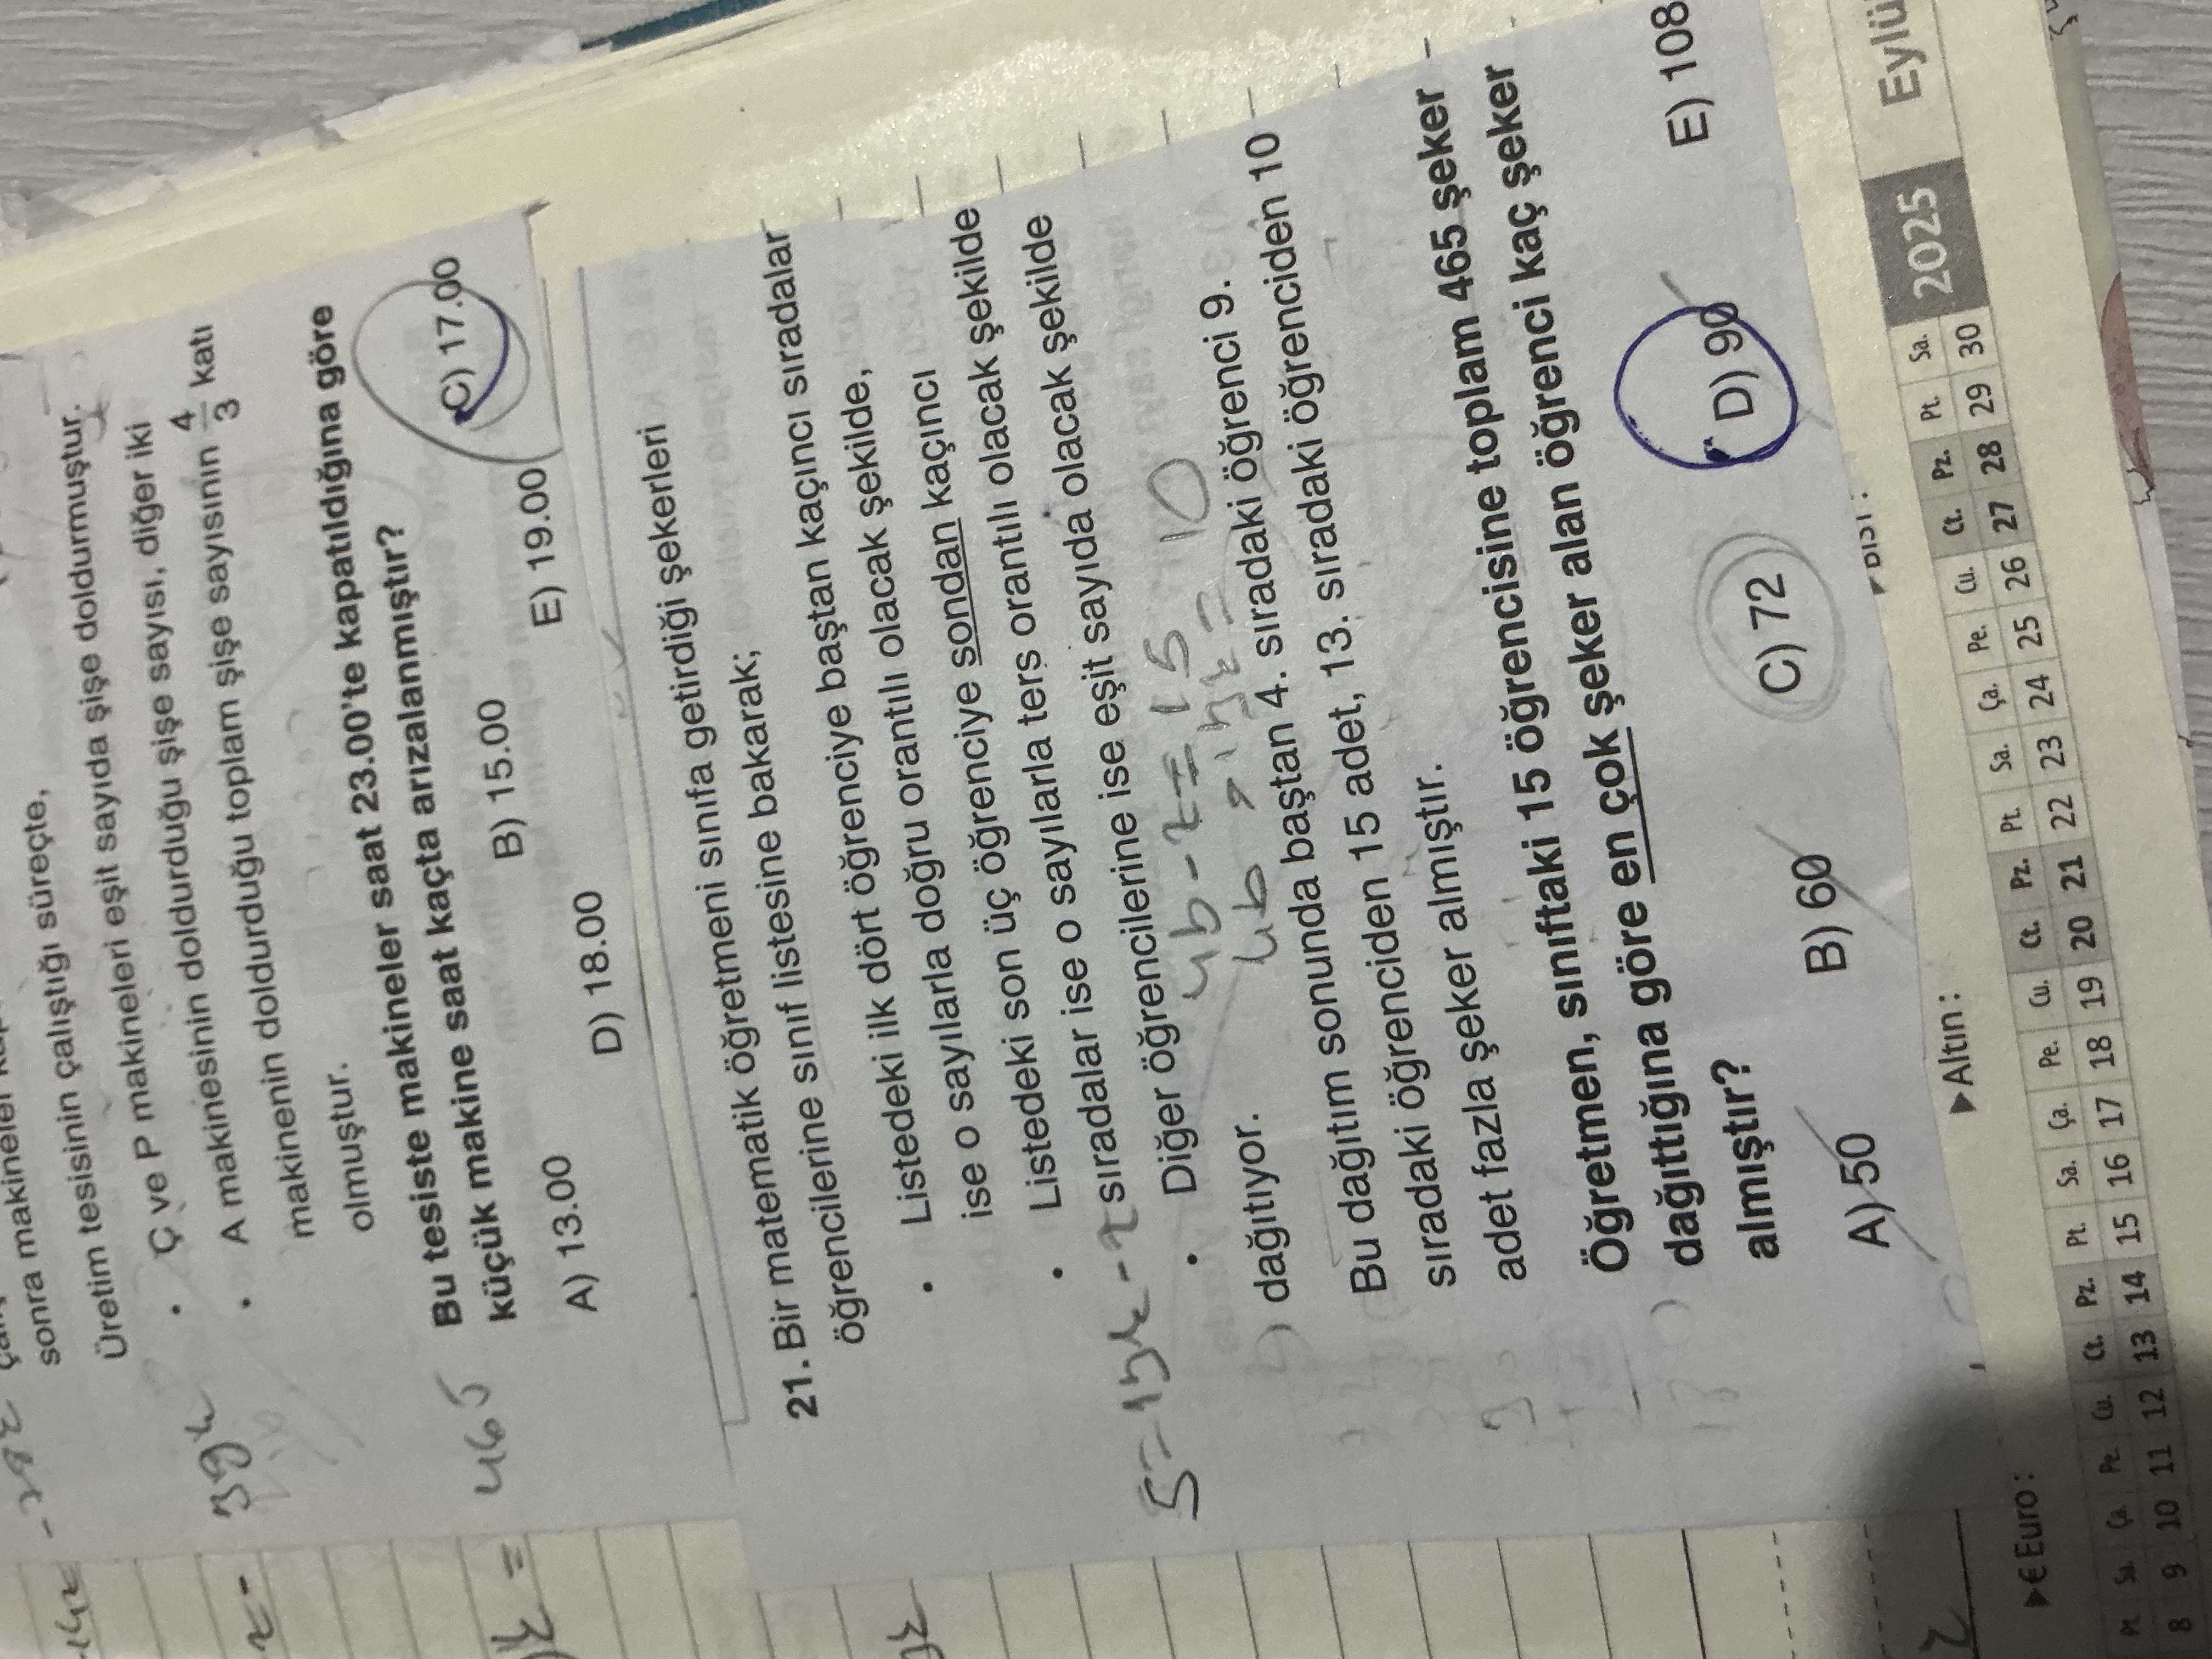 sonra makineler
Üretim tesisinin çalıştığı süreçte,
• Ç ve P makineleri eşit sayıda şişe doldurmuştur.
• A makinesinin doldurduğu şişe sayısı, diğer iki
makinenin doldurduğu toplam şişe sayısının 4/3 katı
olmuştur.
Bu tesiste makineler saat 23.00'te kapatıldığına göre
küçük makine saat kaçta arızalanmıştır?
A) 13.00 B) 15.00 C) 17.00
D) 18.00 E) 19.00
465
21. Bir matematik öğretmeni sınıfa getirdiği şekerleri
öğrencilerine sınıf listesine bakarak;
• Listedeki ilk dört öğrenciye baştan kaçıncı sıradalar
ise o sayılarla doğru orantılı olacak şekilde,
• Listedeki son üç öğrenciye sondan kaçıncı
sıradalar ise o sayılarla ters orantılı olacak şekilde
• Diğer öğrencilerine ise eşit sayıda olacak şekilde
dağıtıyor.
Bu dağıtım sonunda baştan 4. sıradaki öğrenci 9.
sıradaki öğrenciden 15 adet, 13. sıradaki öğrenciden 10
adet fazla şeker almıştır.
Öğretmen, sınıftaki 15 öğrencisine toplam 465 şeker
dağıttığına göre en çok şeker alan öğrenci kaç şeker
almıştır?
A) 50 B) 60 C) 72 D) 90 E) 108
▸€Euro: ▸Altın:
2025 Eylü
Pt. Sa. Ça. Pe. Cu. Ct. Pz. Pt. Sa. Ça. Pe. Cu. Ct. Pz. Pt. Sa. Ça. Pe. Cu. Ct. Pz. Pt. Sa.
8 9 10 11 12 13 14 15 16 17 18 19 20 21 22 23 24 25 26 27 28 29 30